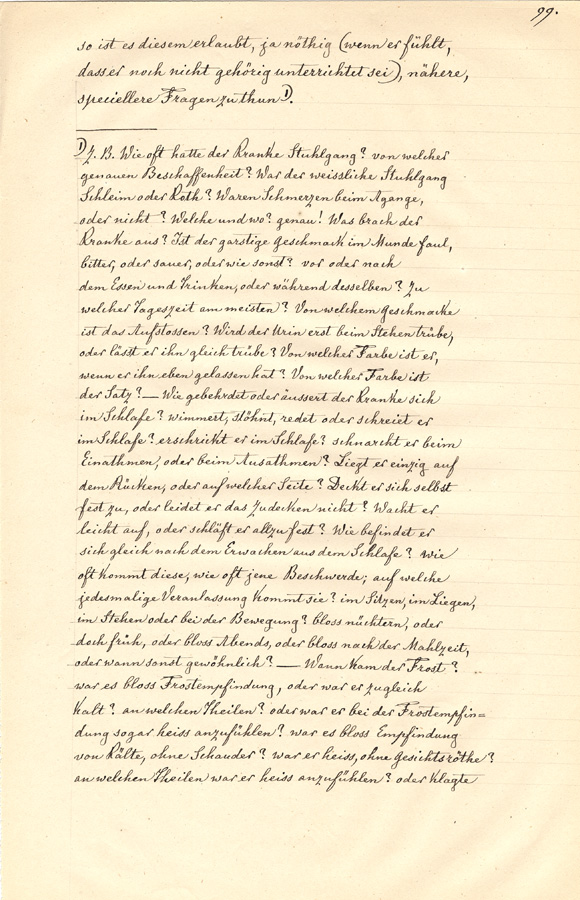 99.
so ist es diesem erlaubt, ja nöthig (wenn er fühlt,
dass er noch nicht gehörig unterrichtet sei), nähere,
speciellere Fragen zu thun 1).
1) Z. B. Wie oft hatte der Kranke Stuhlgang? von welcher
genauen Beschaffenheit? War der weissliche Stuhlgang
Schleim oder Koth? Waren Schmerzen beim Agange,
oder nicht? Welche und wo? genau! Was brach der
Kranke aus? Ist der garstige Geschmack im Munde faul,
bitter, oder sauer, oder wie sonst? vor oder nach
dem Essen und Trinken, oder während desselben? Zu
welcher Tageszeit am meisten? Von welchem Geschmacke
ist das Aufstossen? Wird der Urin erst beim Stehen trübe,
oder lässt er ihn gleich trübe? Von welcher Farbe ist er,
wenn er ihn eben gelassen hat? Von welcher Farbe ist
der Satz? — Wie gebehrdet oder äussert der Kranke sich
im Schlafe? wimmert, stöhnt, redet oder schreiet er
im Schlafe? erschrickt er im Schlafe? schnarcht er beim
Einathmen, oder beim Ausathmen? Liegt er einzig auf
dem Rücken, oder auf welcher Seite? Deckt er sich selbst
fest zu, oder leidet er das Zudecken nicht? Wacht er
leicht auf, oder schläft er allzu fest? Wie befindet er
sich gleich nach dem Erwachen aus dem Schlafe? Wie
oft kommt diese, wie oft jene Beschwerde; auf welche
jedesmalige Veranlassung kommt sie? im Sitzen, im Liegen,
im Stehen oder bei der Bewegung? bloss nüchtern, oder
doch früh, oder bloss Abends, oder bloss nach der Mahlzeit,
oder wann sonst gewöhnlich? — Wann kam der Frost?
war es bloss Frostempfindung, oder war er zugleich
kalt? an welchen Theilen? oder war er bei der Frostempfin=
dung sogar heiss anzufühlen? war es bloss Empfindung
von Kälte, ohne Schauder? war er heiss, ohne Gesichtsröthe?
an welchen Theilen war er heiss anzufühlen? oder klagte